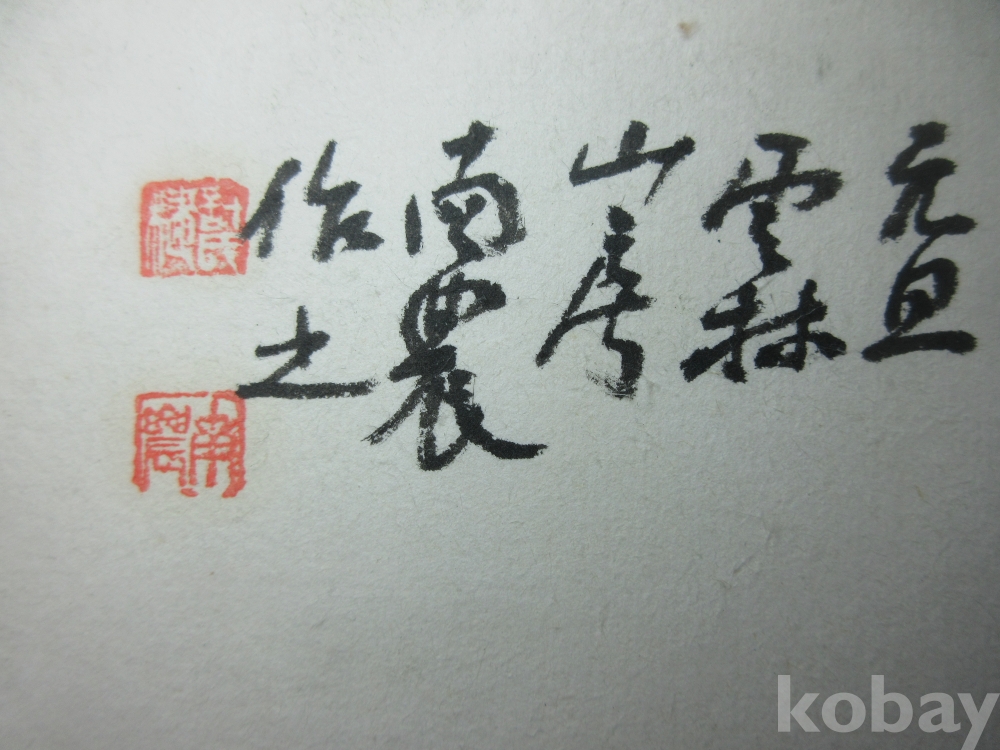 元旦
雲林
山房
南農
作之
南農
kobay